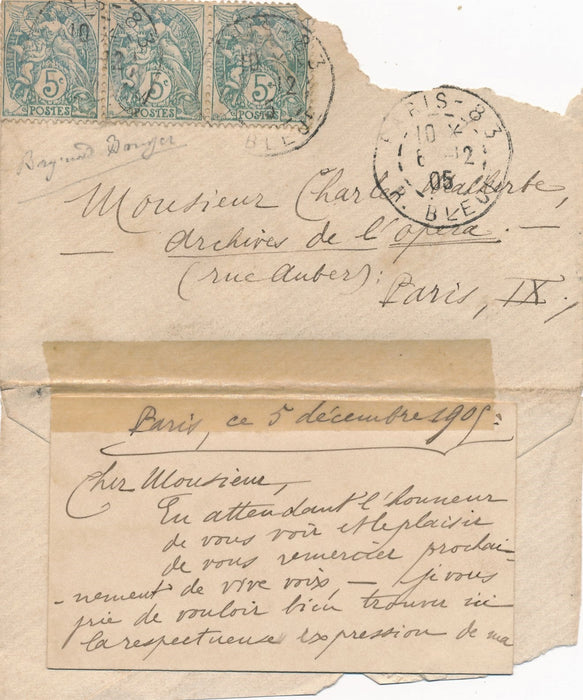 5c 5c 5c
POSTES POSTES POSTES
83
12
BLEUE
PARIS-83
10
6 12
05
R. BLEUE
Raymond Bouyer
Monsieur Charles Malherbe,
— Archives de l'opéra. —
(rue Auber):
Paris, IX.,
Paris, ce 5 décembre 1905:
Cher Monsieur,
En attendant l'honneur
de vous voir et le plaisir
de vous remercier prochai-
-nement de vive voix, — je vous
prie de vouloir bien trouver ici
la respectueuse expression de ma